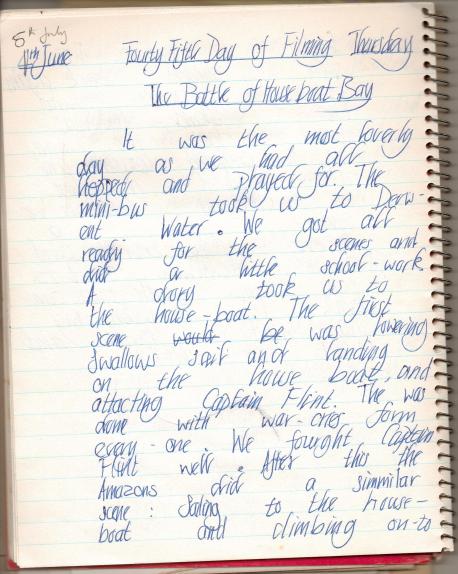 5th July
11th June Fourty Fifth Day of Filming Thursday
The Battle of Houseboat Bay
It was the most loverly
day as we had all
hopped and prayed for. The
mini-bus took us to Derw-
ent Water. We got all
ready for the scenes and
did a little school-work.
A dory took us to
the house-boat. The first
scene would be was lowering
Swallows sail and landing
on the house boat, and
attacting Captain Flint. The was
done with war-cries form
every-one. We fought Captain
Flint well. After this the
Amazons did a simmilar
scene: Sailing to the house-
boat and climbing on-to